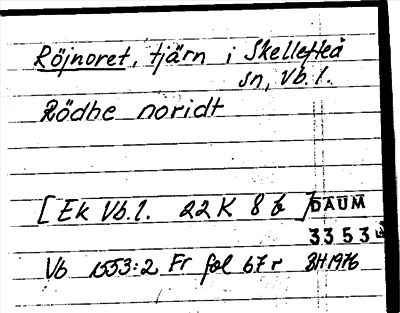 Röjnoret, tjärn i Skellefteå
sn, Vb. l.
Rödhe noridt
[Ek Vb. l. 22 K 8 b ] DAUM
3353
Vb 1553:2 Fr fol 67 r BH 1976